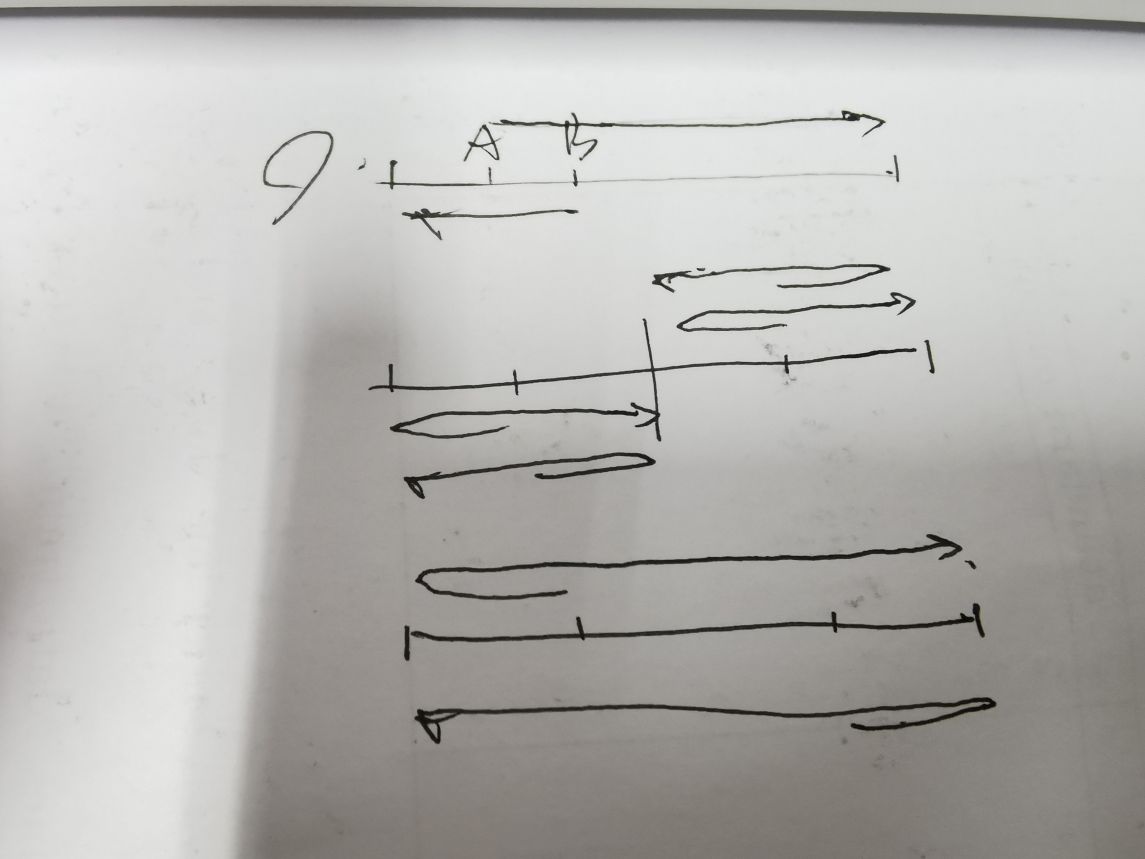 9.
A B